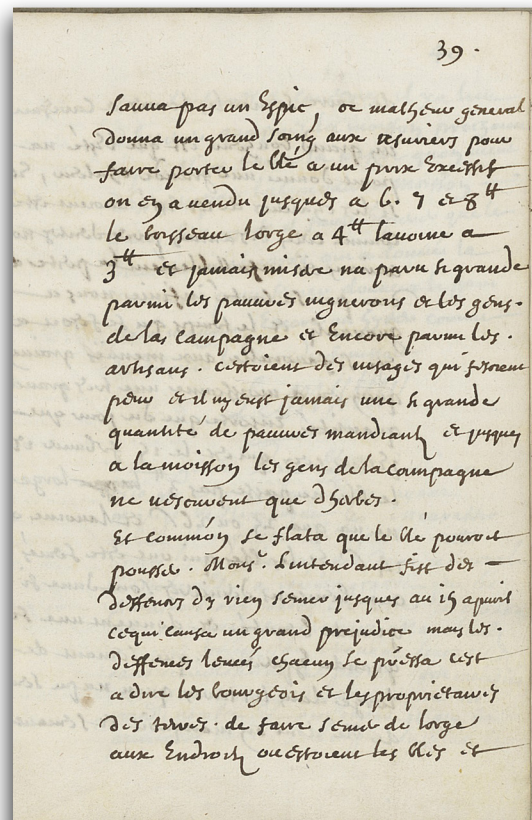 39.
sauva pas un Espic, ce malheur general
donna un grand soing aux usuriers pour
faire porter le blé a un prix Excessif
on en a vendu jusques a 6. 7 et 8 tt
le boisseau lorge a 4 tt lavoine a
3 tt et jamais misere na paru si grande
parmi les pauvres vignerons et les gens
de las Campagne et Encore parmi les
artisans. cestoient des visages qui fesoient
peur et il ny eust jamais une si grande
quantité de pauvres mandiants et jusques
a la moisson les gens de la campagne
ne vescurent que dherbes.
Et comme on se flata que le blé pouroit
pousser. Monsr. Lintendant fist des
deffences dy rien semer jusques au 15 apvril
ce qui causa un grand prejudice mais les
deffences levees chacun se pressa cest
a dire les bourgeois et les proprietaires
des terres. de faire semer de lorge
aux Endroits ou estoient les blés et